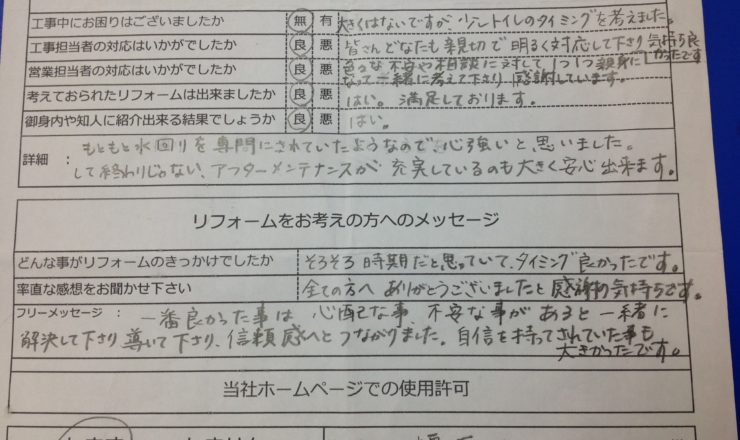 工事中にお困りはございましたか 無 有 大きくはないですが 少しトイレのタイミングを考えました。
工事担当者の対応はいかがでしたか 良 悪 皆さんどなたも親切で明るく対応して下さり気持ち良かったです
営業担当者の対応はいかがでしたか 良 悪 色々な不安や相談に対して1つ1つ親身になって一緒に考えて下さり感謝しています。
考えておられたリフォームは出来ましたか 良 悪 はい。満足しております。
御身内や知人に紹介出来る結果でしょうか 良 悪 はい。
詳細 : もともと水回りを専門にされていたようなので、心強いと思いました。
して終わりじゃない、アフターメンテナンスが充実しているのも大きく安心出来ます。
リフォームをお考えの方へのメッセージ
どんな事がリフォームのきっかけでしたか そろそろ時期だと思っていて、タイミング良かったです。
率直な感想をお聞かせ下さい 全ての方へ ありがとうございましたと感謝の気持ちです。
フリーメッセージ : 一番良かった事は 心配な事、不安な事があると一緒に
解決して下さり導いて下さり、信頼感へとつながりました。自信を持ってされていた事も
大きかったです。
当社ホームページでの使用許可